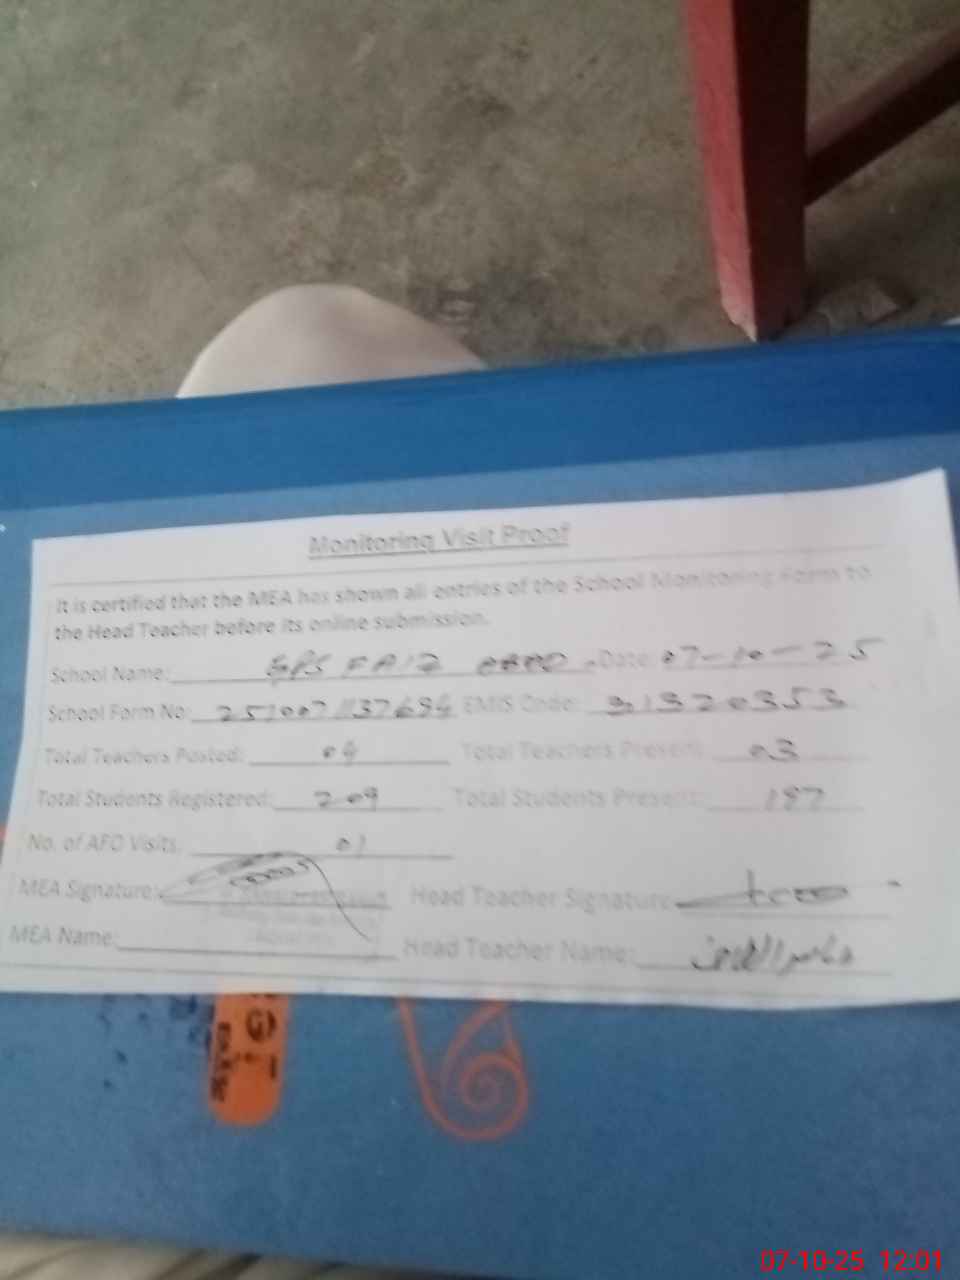 Monitoring Visit Proof
It is certified that the MEA has shown all entries of the School Monitoring Form to
the Head Teacher before its online submission.
School Name: GPS FAIZ ABAD Date: 07-10-25
School Form No: EMIS Code: 31320353
Total Teachers Posted: 04 Total Teachers Present: 03
Total Students Registered: 209 Total Students Present: 187
No. of AFO Visits: 01
MEA Signature: Head Teacher Signature:
MEA Name: Head Teacher Name:
07-10-25 12:01